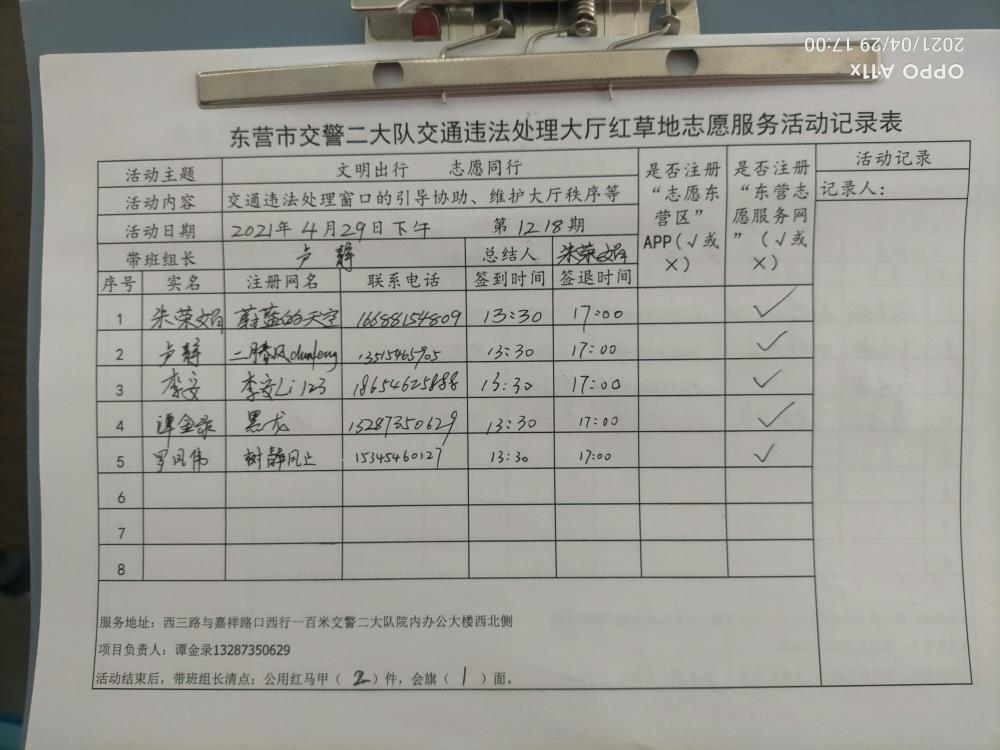 OPPO A11x
2021/04/29 17:00
东营市交警二大队交通违法处理大厅红草地志愿服务活动记录表
活动主题 文明出行 志愿同行 是否注册“志愿东营区”APP(√或×) 是否注册“东营志愿服务网”(√或×) 活动记录
活动内容 交通违法处理窗口的引导协助、维护大厅秩序等 记录人:
活动日期 2021年4月29日下午 第1218期
带班组长 卢静 总结人 朱荣娟
序号 实名 注册网名 联系电话 签到时间 签退时间
1 朱荣娟 蔚蓝的天空 16688154809 13:30 17:00 ✓
2 卢静 二腾风 13515465905 13:30 17:00 ✓
3 李安 李安Li123 18654625888 13:30 17:00 ✓
4 谭金录 黑龙 13287350629 13:30 17:00 ✓
5 罗凤伟 树静风止 15345460127 13:30 17:00 ✓
6
7
8
服务地址:西三路与嘉祥路口西行一百米交警二大队院内办公大楼西北侧
项目负责人:谭金录13287350629
活动结束后,带班组长清点:公用红马甲(2)件,会旗(1)面。